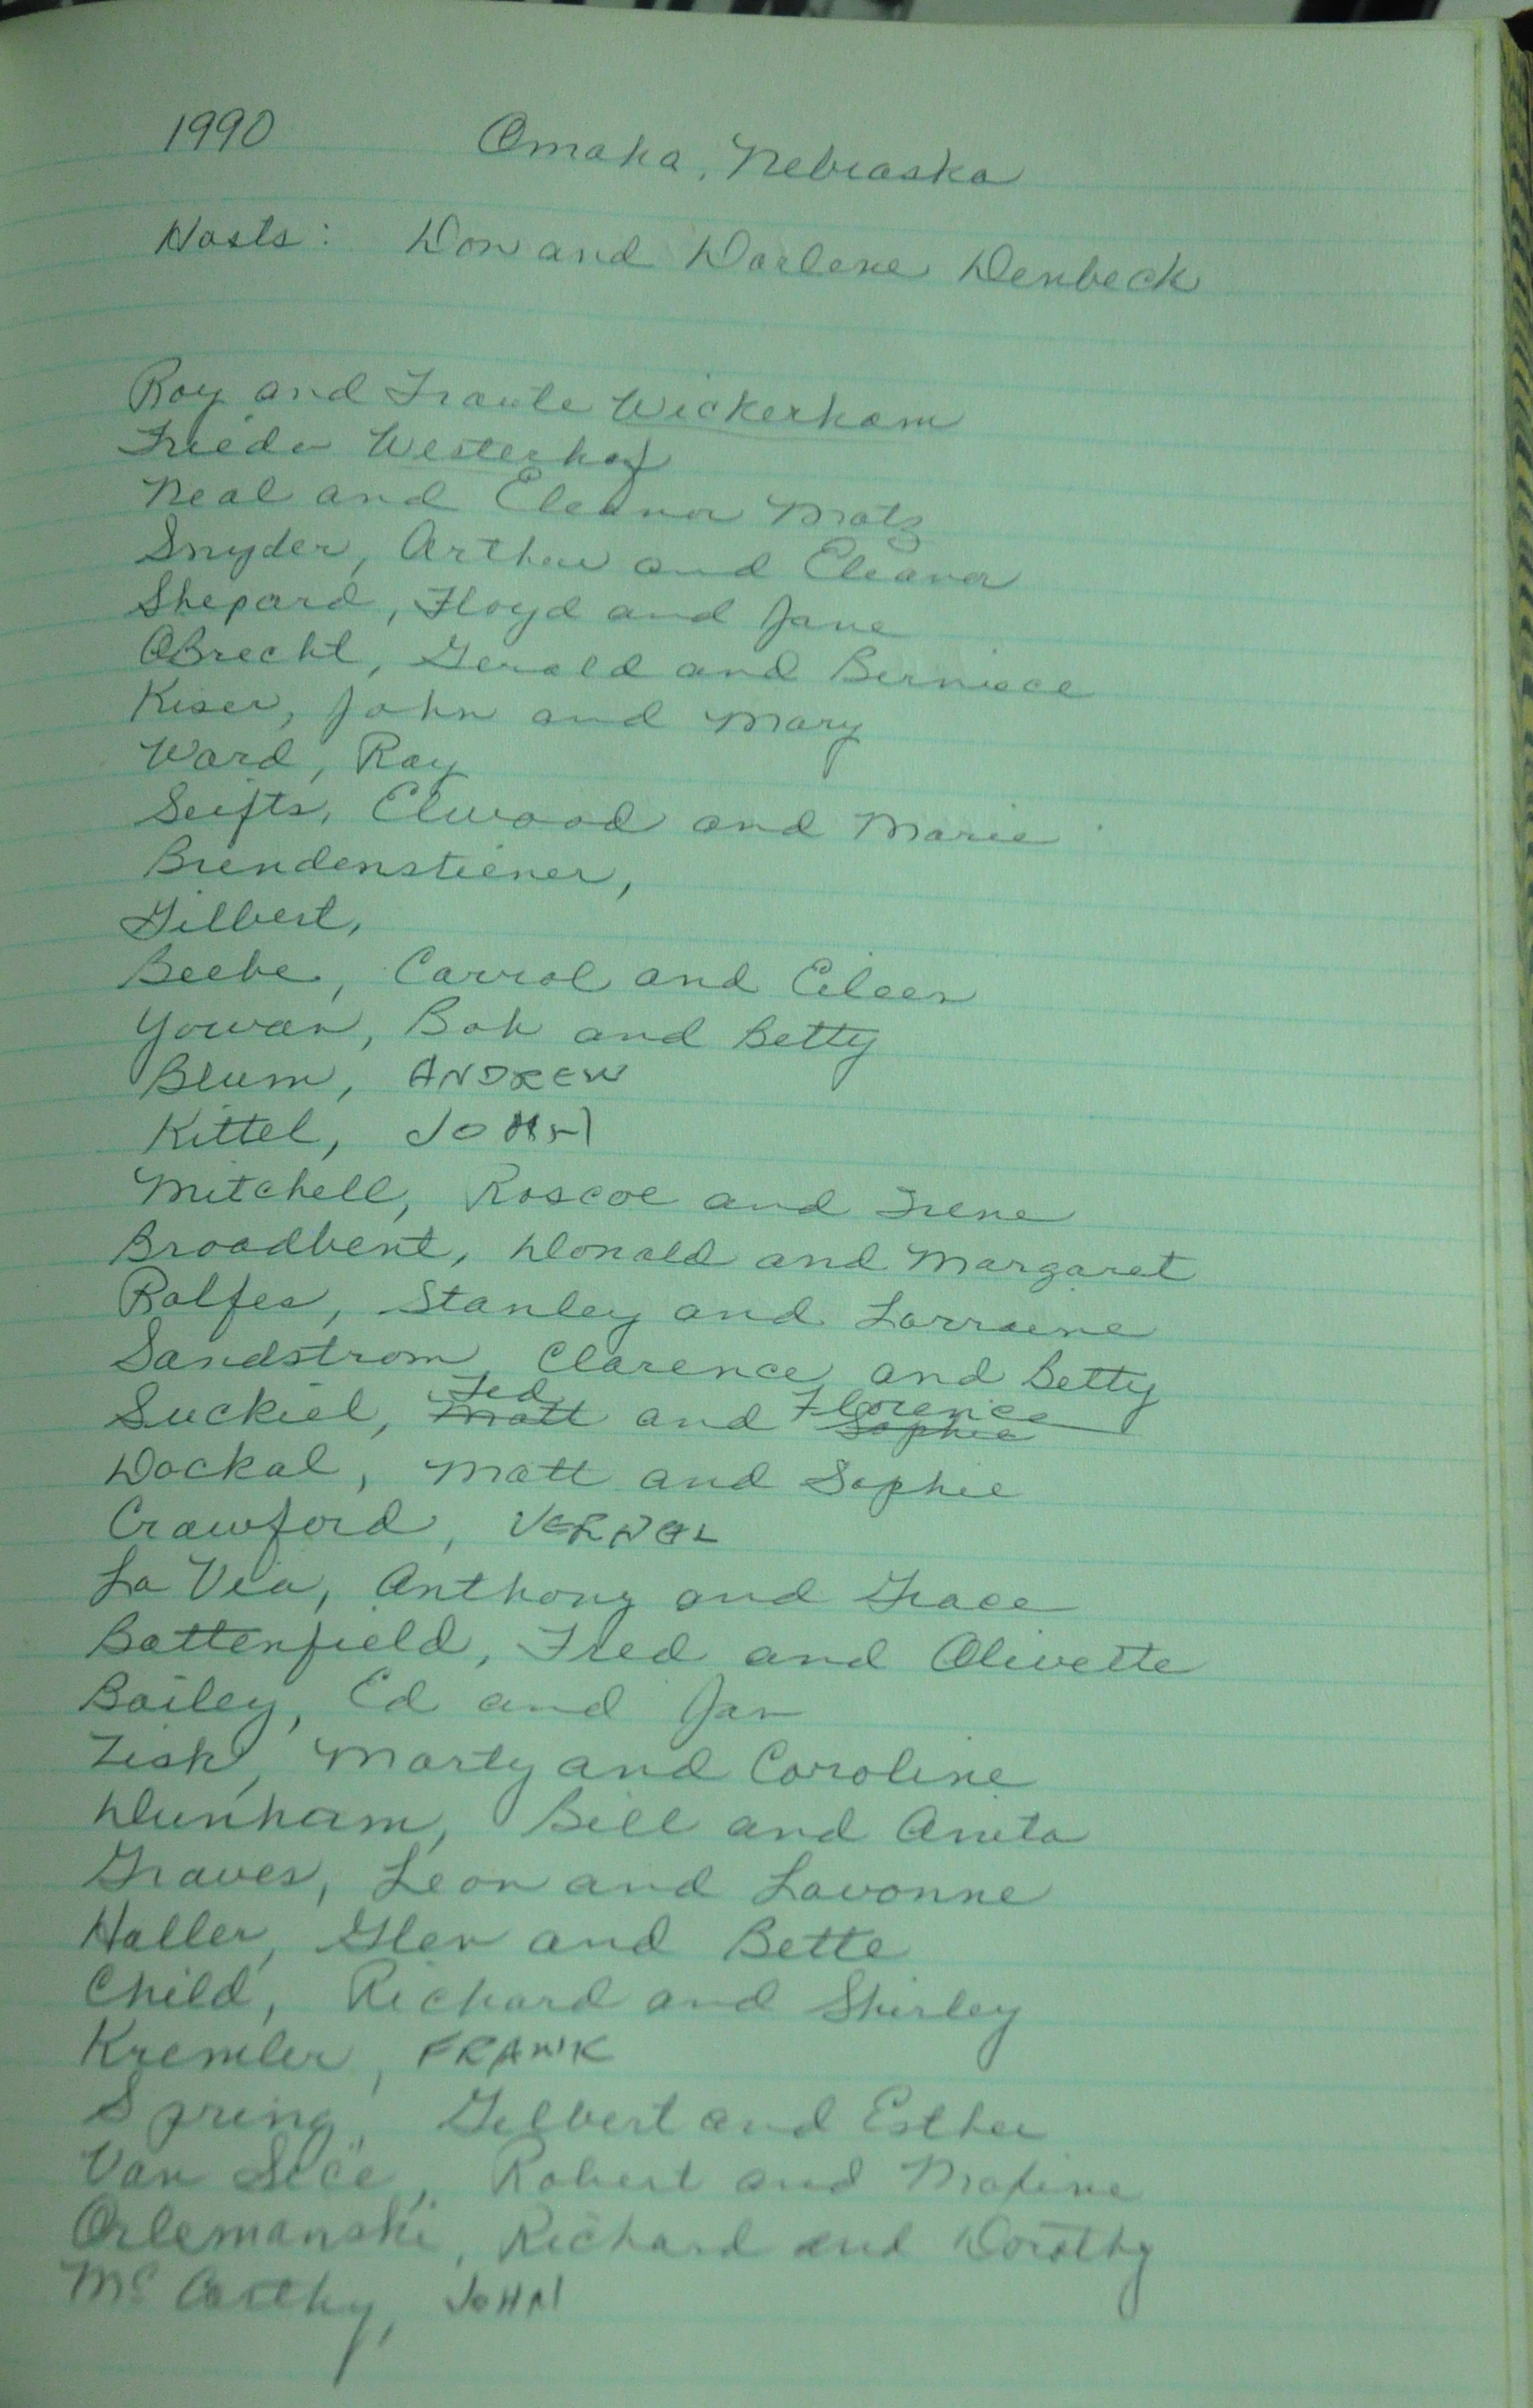 1990 Omaha, Nebraska
Hosts: Don and Darlene Denbeck
Roy and Traute Wickerham
Frieda Westerhof
Neal and Eleanor Matz
Snyder, Arthur and Eleanor
Shepard, Floyd and Jane
OBrecht, Gerald and Berniece
Kiser, John and Mary
Ward, Ray
Seifts, Elwood and Marie
Brendensteiner,
Gilbert,
Beebe, Carrol and Eileen
Yowan, Bob and Betty
Blum, ANDREW
Kittel, JOHN
Mitchell, Roscoe and Irene
Broadbent, Donald and Margaret
Rolfes, Stanley and Lorraine
Sandstrom, Clarence and Betty
Suckiel, Matt Ted and Sophie Florence
Dockal, Matt and Sophie
Crawford, VERNAL
La Via, Anthony and Grace
Battenfield, Fred and Olivette
Bailey, Ed and Jan
Zish, Marty and Caroline
Dunham, Bill and Anita
Graves, Leon and Lavonne
Haller, Glen and Bette
Child, Richard and Shirley
Kremler, FRANK
Spring, Gilbert and Esther
Van Robert and Maxine
Orlemanski, Richard and Dorothy
McCarthy, JOHN